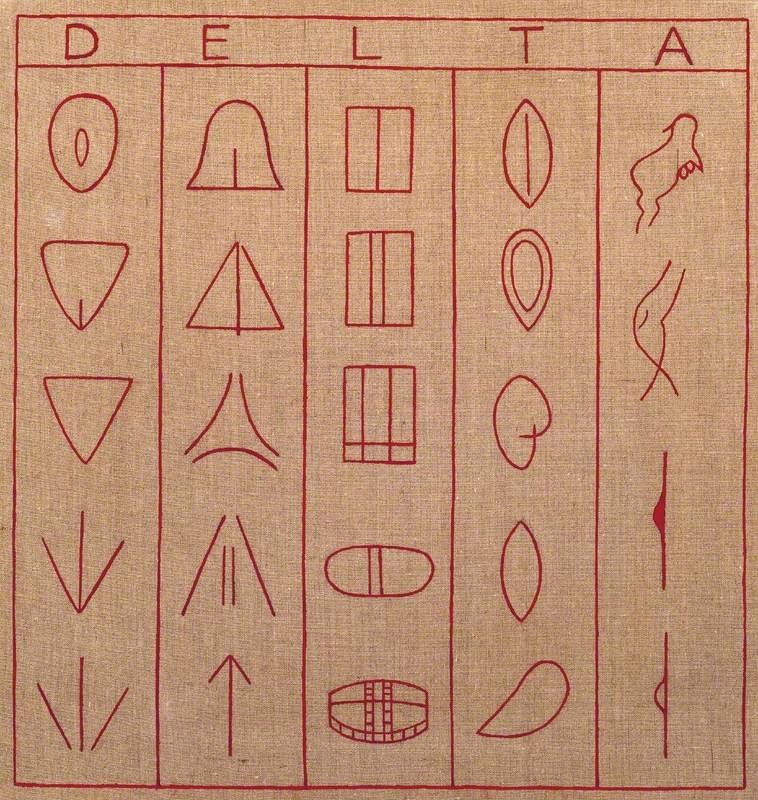 D E L T A